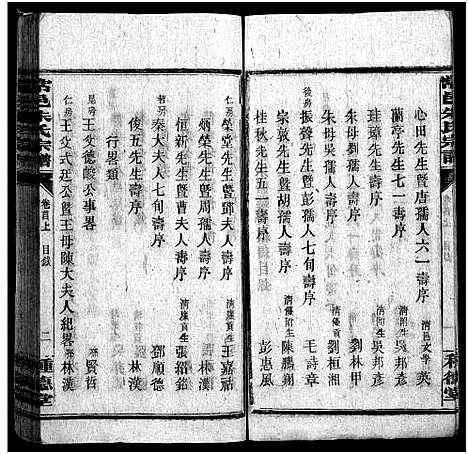 心田先生暨唐孺人六一壽序 清邑文學 英
蘭亭先生七一壽序 清附生 吳邦彥
廷璋先生壽序 清附生 吳邦彥
朱母劉孺人壽序 劉林甲
朱母吳孺人壽序 清優貢 劉桓湘
後房 振聲先生暨彭孺人七旬壽序 毛詩章
宗敦先生暨胡孺人壽序 清優附生 陳鵬翔
桂秋先生五一壽序 彭惠風
常邑朱氏宗譜
卷首上 目錄 二
種德堂
榮堂先生暨鄧夫人壽序 清廩貢生 王嘉祜
炳榮先生暨周孺人壽序
恒新先生暨曹夫人壽序 清廩貢生 張紹鎰
后房 秦大夫人七旬壽序 鄧順德
俊五先生壽序 林漢
行畧類
昆房 王父德峻公事畧 賢哲
仁房 王父式廷公暨王母陳大夫人紀畧 林漢